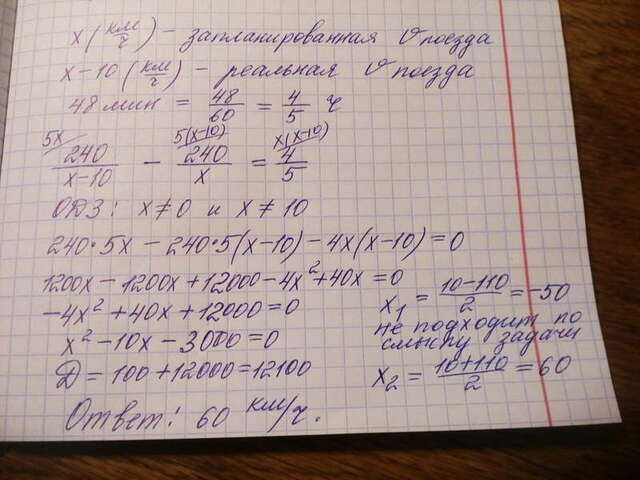 x (км/ч) – запланированная v поезда
x – 10 (км/ч) – реальная v поезда
48 мин = 48/60 = 4/5 ч
5x 5(x–10) x(x–10)
240/(x–10) – 240/x = 4/5
ОДЗ: x ≠ 0 и x ≠ 10
240·5x – 240·5(x–10) – 4x(x–10) = 0
1200x – 1200x + 12000 – 4x² + 40x = 0
–4x² + 40x + 12000 = 0
x² – 10x – 3000 = 0
Д = 100 + 12000 = 12100
x₁ = (10–110)/2 = –50
не подходит по
смыслу задачи
x₂ = (10+110)/2 = 60
Ответ: 60 км/ч.